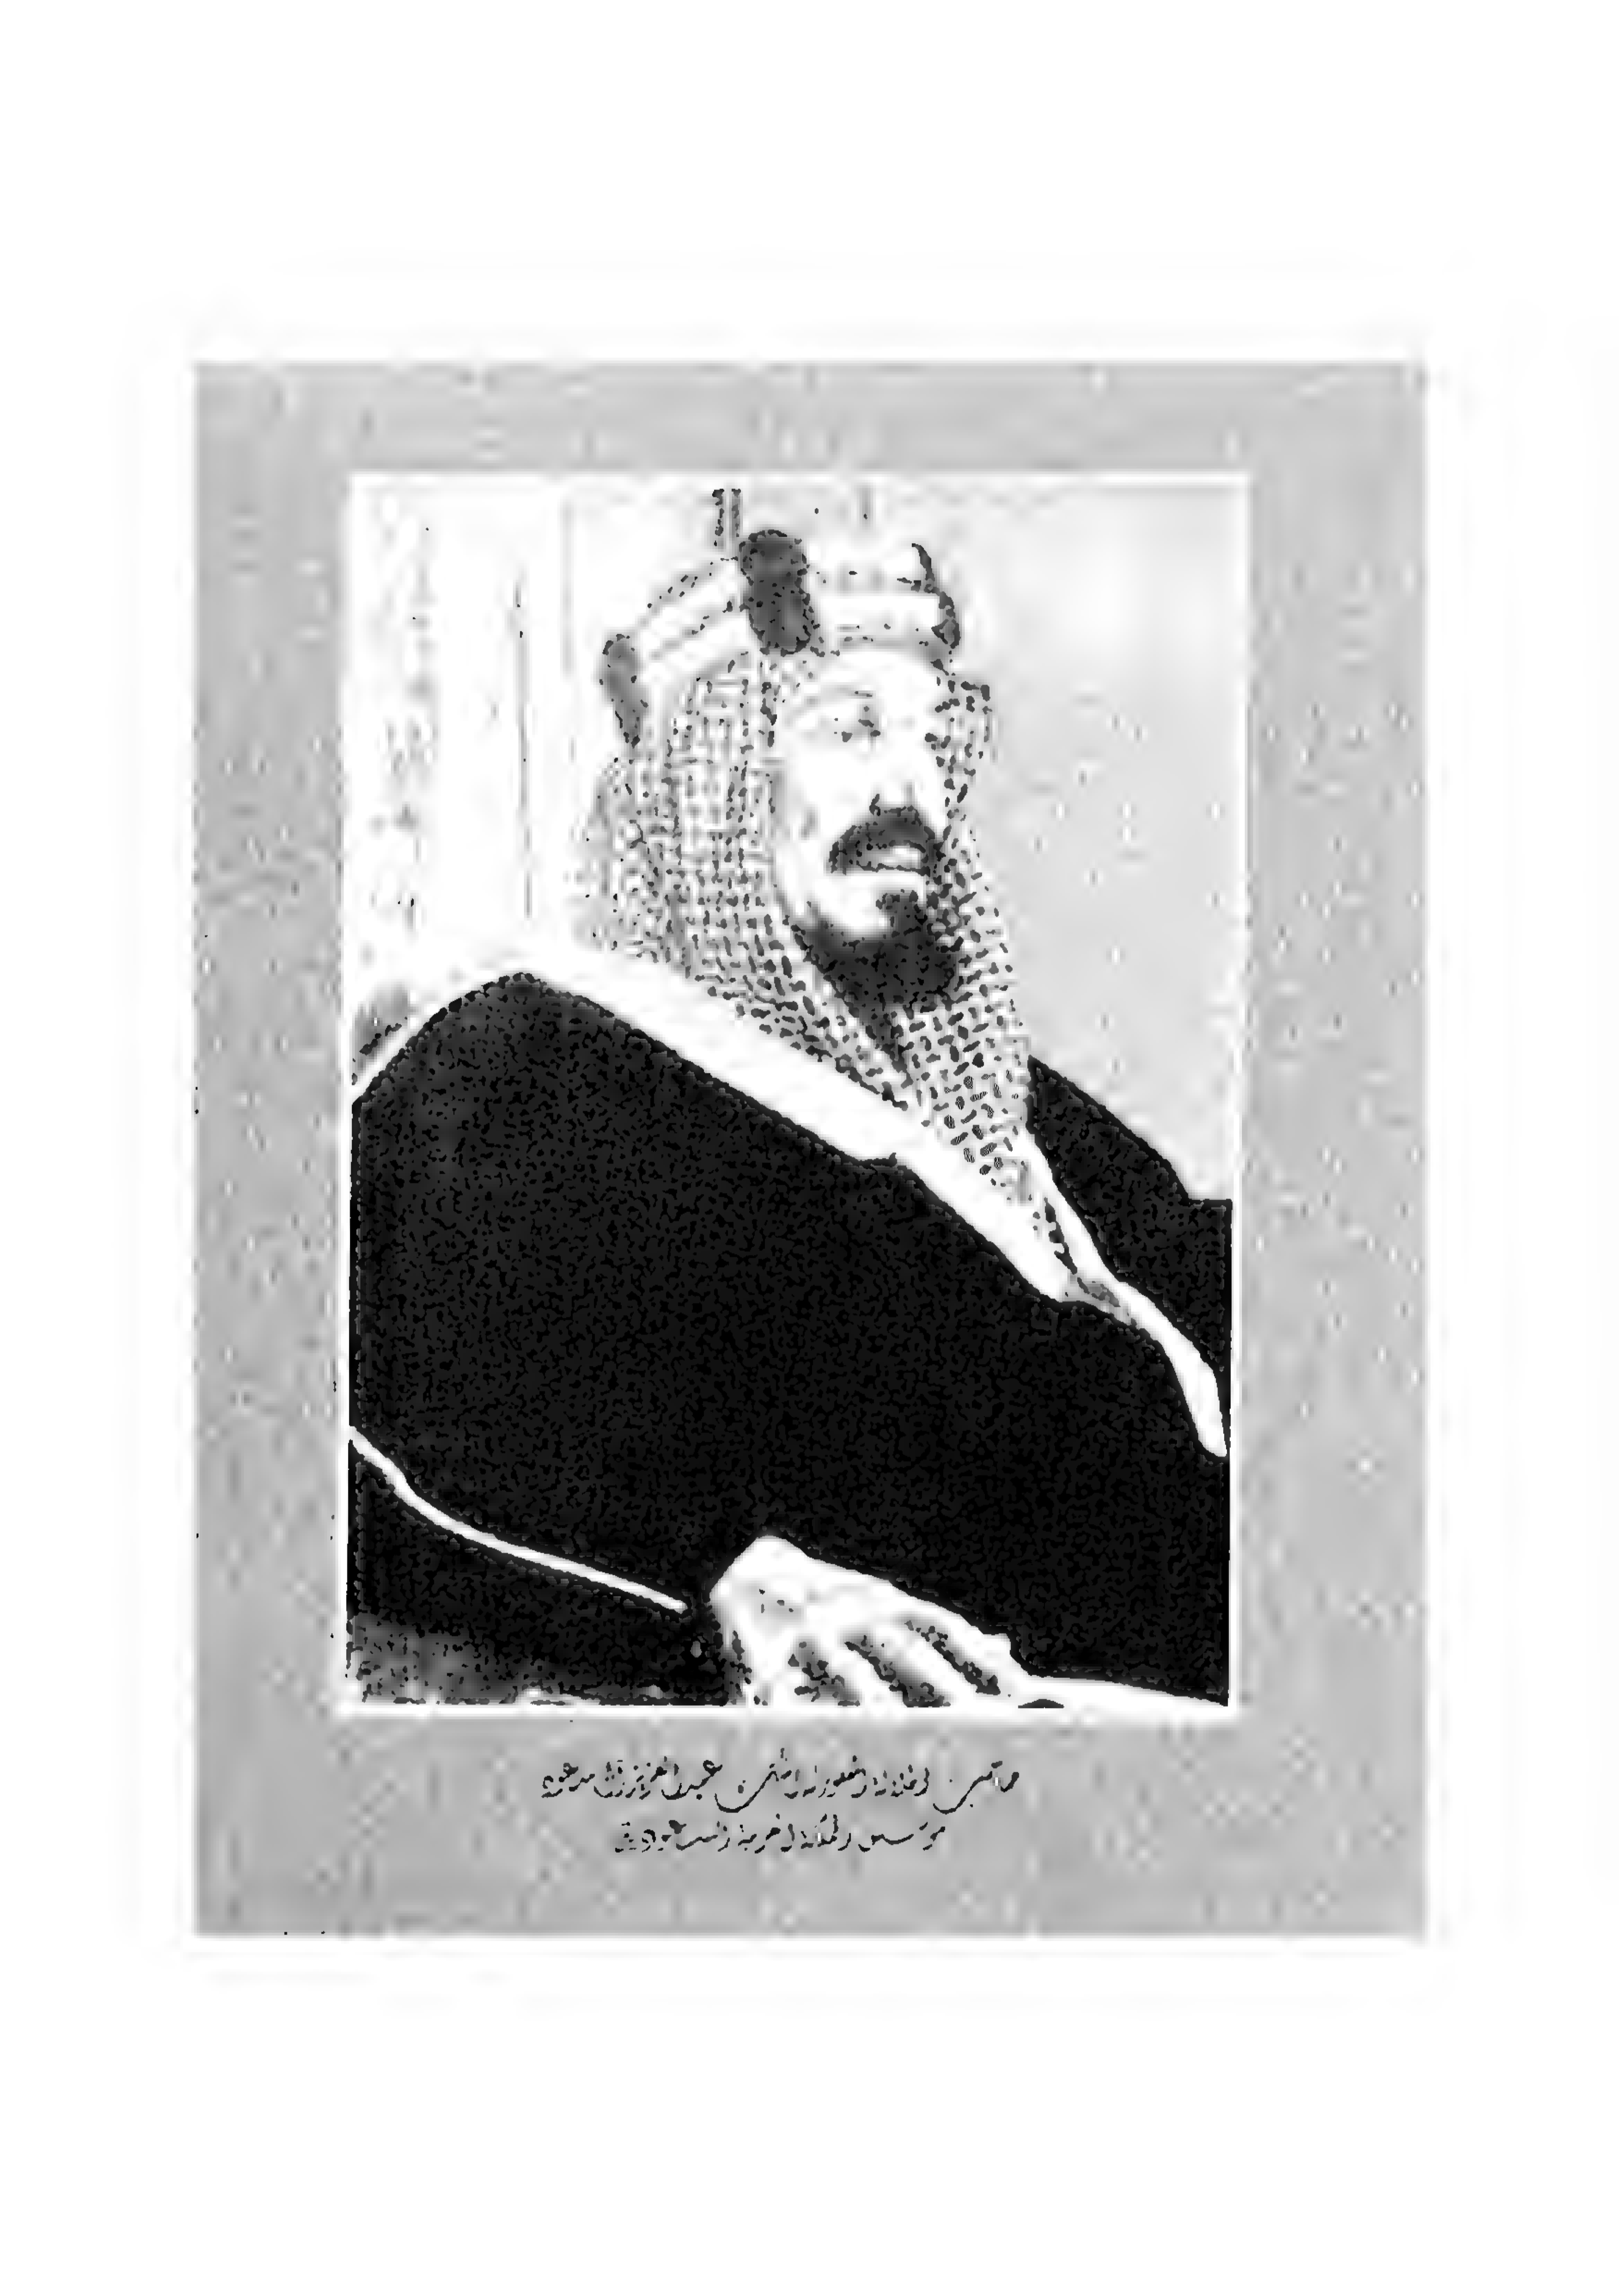 صاحب الجلالة المغفور له الملك عبد العزيز آل سعود
مؤسس المملكة العربية السعودية